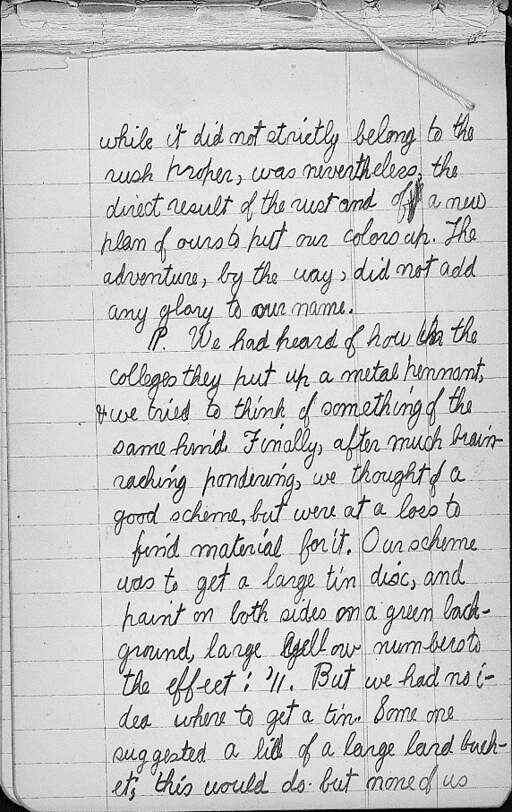 while it did not strictly belong to the
rush proper, was nevertheless, the
direct result of the rust and of a new
plan of ours to put our colors up. The
adventure, by the way, did not add
any glory to our name.
P. We had heard of how in the
colleges they put up a metal pennant,
& we tried to think of something of the
same kind. Finally, after much brain-
racking pondering, we thought of a
good scheme, but were at a loss to
find material for it. Our scheme
was to get a large tin disc, and
paint on both sides on a green back-
ground, large yellow numbers to
the effect: '11. But we had no i-
dea where to get a tin. Some one
suggested a lid of a large lard buck-
et; this would do. but none of us